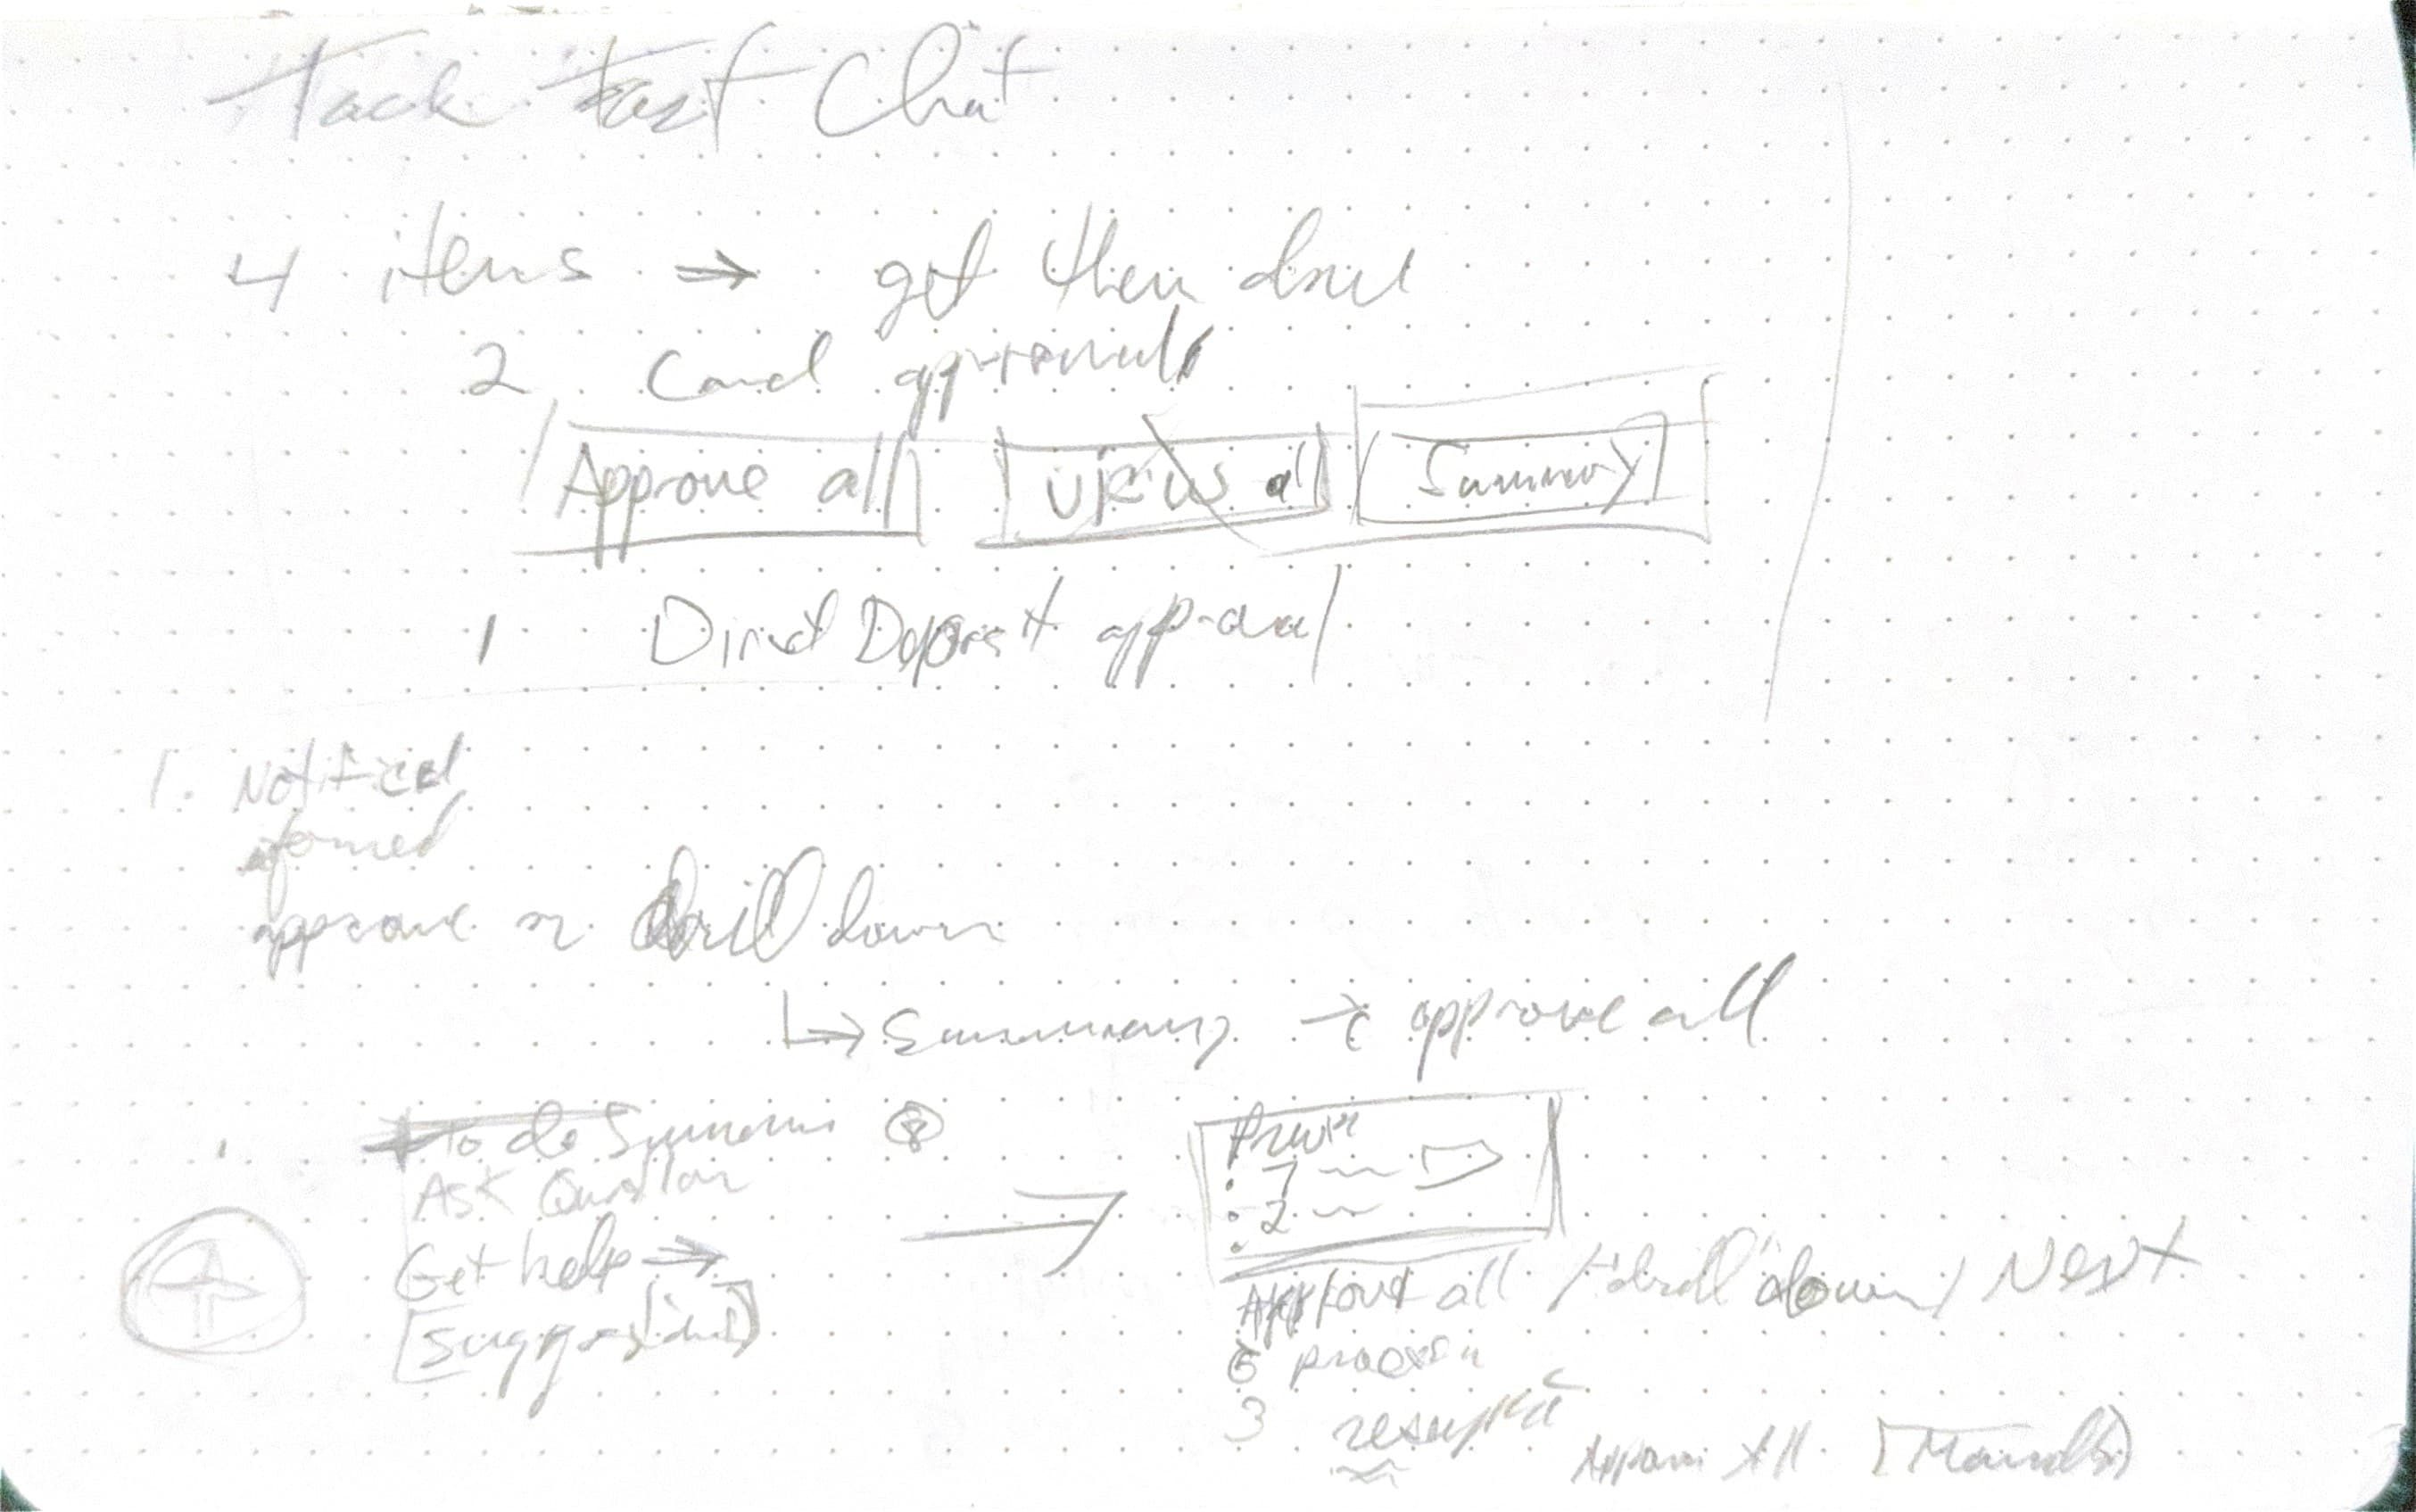 Task Chat
4 items → get them done
2 Card approvals
Approve all views all Summary
1 Direct Deposit approval
1. Notified
approve or drill down
↳ Summary → approve all
To do Summary
Ask Question
Get help →
[Suggestions]
1
2
Approve all / "drill" down / Next
3
Approve All